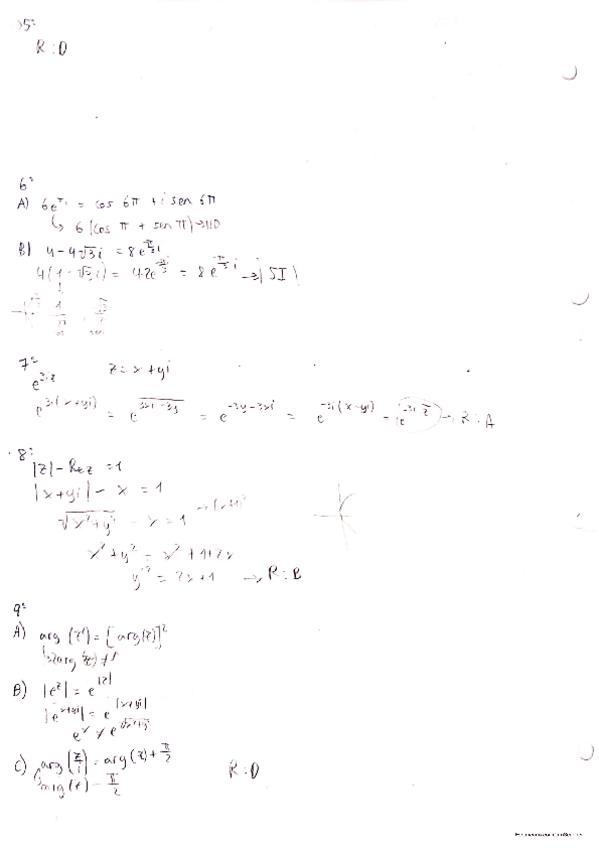 5º
R:D
6º
A) 6e^{πi} = cos 6π + i sen 6π
↳ 6 (cos π + sen π) → NO
B) 4-4√3i = 8e^{-π/3 i}
4(1-√3i) = 4·2e^{-π/3 i} = 8e^{-π/3 i} → ¡SI!
7º z = x+yi
e^{3iz}
e^{3i(x+yi)} = e^{3xi-3y} = e^{-3y-3xi} = e^{-3i(x-yi)} = e^{-3i z̅} → R:A
8º
|z| - Re z = 1
|x+yi| - x = 1
√x²+y² - x = 1
x² + y² = x² + 1 + 2x
y² = 2x+1 → R:B
9º
A) arg (z²) = [arg(z)]²
B) |e^z| = e^{|z|}
|e^{x+yi}| = e^{|x+yi|}
e^x ≠ e^{√x²+y²}
C) arg(z/i) = arg(z) + π/2
arg(z) - π/2 R:D